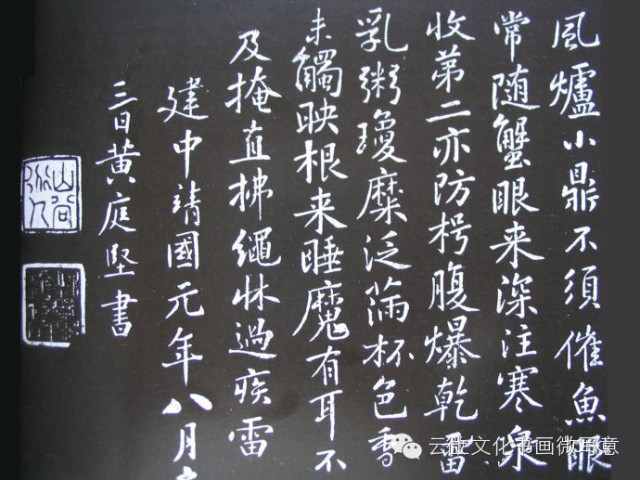 風爐小鼎不須催魚眼
常随蟹眼来深注寒泉
收第二亦防枵腹爆乾雷
乳粥瓊糜泛滿杯色香
未觸映根来睡魔有耳不
及掩直拂繩牀過疾雷
建中靖國元年八月
三日黄庭堅書
山谷道人
文化书画微